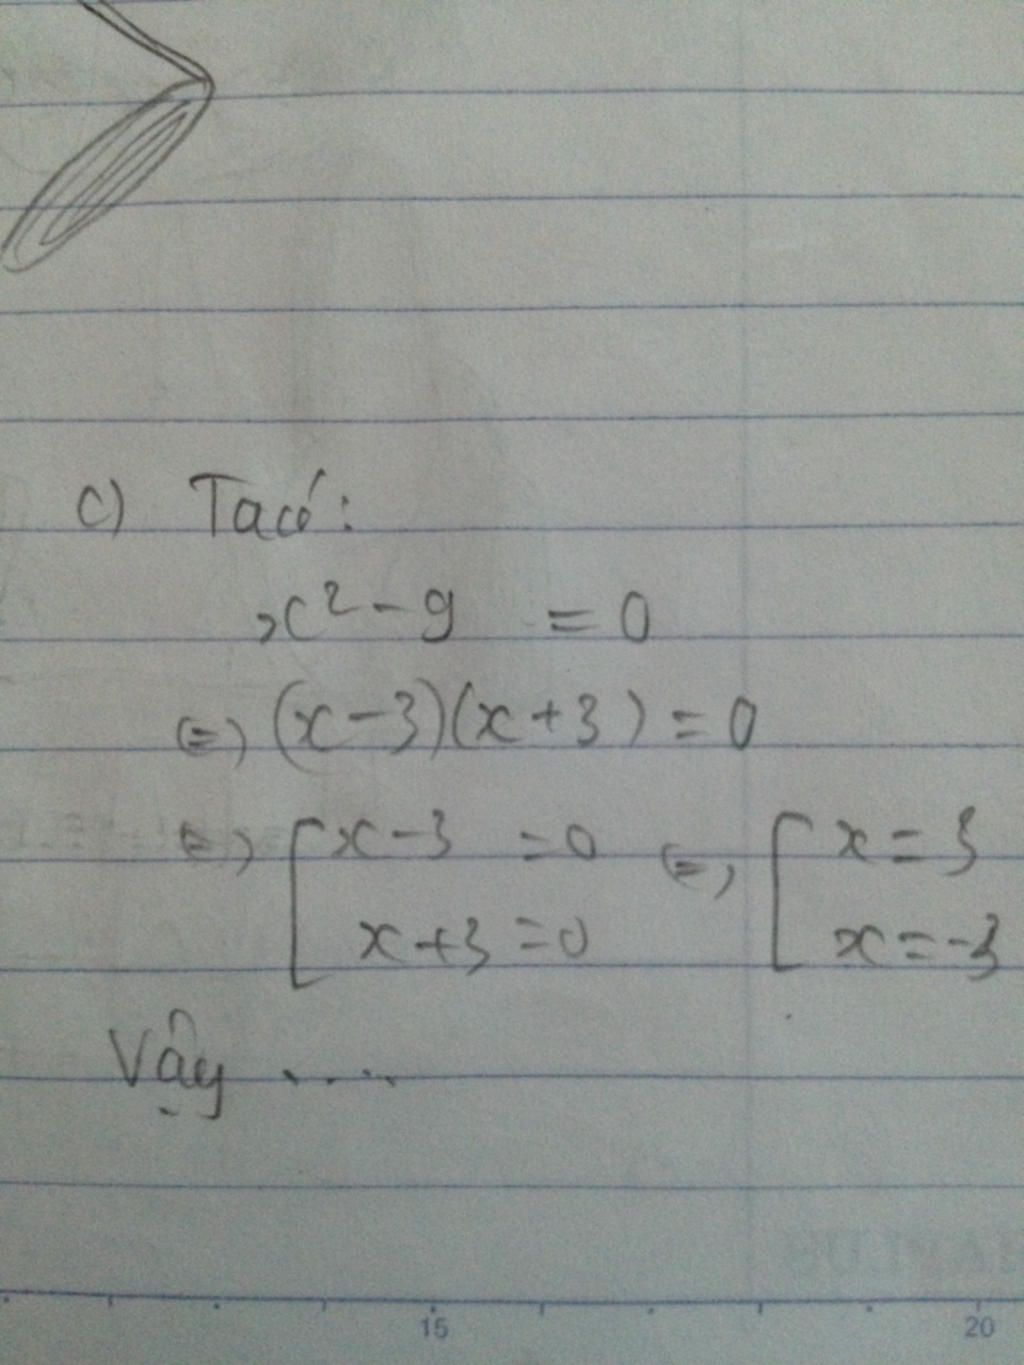 c) Ta có:
x² - 9 = 0
(=) (x - 3)(x + 3) = 0
(=) [ x - 3 = 0 (=) [ x = 3
x + 3 = 0 x = -3
Vậy ....
15 20